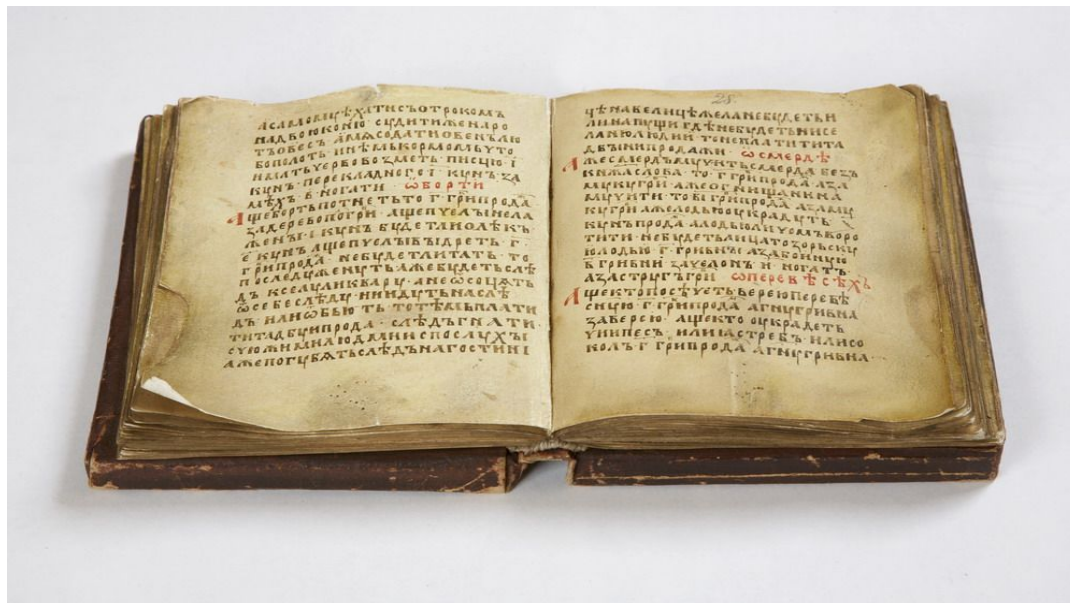 АСАМОМꙊѢХАТИСЪОТРОКОМЪ
НАДВОЮКОНЮ · СꙊДИТИЖЕНАРО
ТЪОВЕСЪ · АМѦСОДАТИОВЕНЪЛЮ
БОПОЛОТЬ · ИНѢМЬКОРМОМЬЧТО
ИМАТЬЧЕРВОВОЗМЕТЬ · ПИСЦЮ · І ·
КꙊНЪ · ПЕРЕКЛАДНОГО · Г · КꙊНЪ · ЗА
МѢХЪ · В · НОГАТИ · ѠБОРТИ
АЩЕБОРТЬПОТНЕТЬТО · Г · ГРИ҃ПРОДА
ЗАДЕРЕВОПОЛГРИ · АЩЕПЧЕЛЫИЗЛА
ЖЕНЫ · Г · КꙊНЪ БꙊДЕТЛИОЛѢКЪ
Е КꙊНЪ АЩЕПЧЕЛЫВЫДРЕТЬ · Г ·
ГРИ҃ПРОДА · НЕБꙊДЕТЛИТАТЬ · ТО
ПОСЛЕДꙊЖЕНꙊТЬАЖЕБꙊДЕТЬСЛѢ
ДЪ КСЕЛꙊИЛИКВАРꙊ · АНЕѠСОЧѦТЬ
ѾСЕБЕСЛѢДꙊ · НИИДꙊТЬНАСЛѢ
ДЪ ИЛИѾБЬЮТЬ ТОТѢМЪПЛАТИ
ТИТАДБꙊИПРОДА · СЛѢДЪГНАТИ ·
СЧЮЖИМИЛЮДМИИСПОСЛꙊХЫ
АЖЕПОГꙊБѦТЬСЛѢДЪНАГОСТИНІ
28.
ЦѢНАВЕЛИЦѢМЕЛАНЕБꙊДЕТЬИ
ЛИНАПꙊЩИГДѢНЕБꙊДЕТЬНИСЕ
ЛАНИЛЮДИИ ТОНЕПЛАТИТИТА
ДБЫНИПРОДАЖИ · ѠСМЕРДѢ
АЖЕСМЕРДЪМꙊЧИТЬСМЕРДА БЕЗЪ
КНѦЖАСЛОВА · ТО · Г · ГРИ҃ПРОДА · АЗА
МꙊКꙊГРИ · АЖЕОГНИЩАНИНА
МꙊЧИТИ · ТОВІГРИ҃ПРОДА · АЗАМꙊ
КꙊГРИ АЖЕЛОДЬЮОУКРАДꙊТЬ
КꙊНЪПРОДА · АЛОДЬЮЛИЧОМЪВОРО
ТИТИ · НЕБꙊДЕТЬЛИЦАТОЗОРЬСКꙊ
ЮЛОДЬЮ · Г · ГРИВНЫ · АЗАБОИНꙊЮ
В ГРИВНИ ЗАЧЕЛОНЪ Н · НОГАТЪ ·
АЗАСТРꙊГЪГРИ · ѠПЕРЕВѢСѢХЪ
АЩЕКТОПОСѢЧЕТЬВЕРЕЮПЕРЕВѢ
СНꙊЮ · Г · ГРИ҃ПРОДА · АГНꙊГРИВНА
ЗАВЕРЕЮ · АЩЕКТО ОУКРАДЕТЬ
ЧИИПЕСЪ · ИЛИꙖСТРЕБЪ · ИЛИСО
КОЛЪ · Г · ГРИ҃ПРОДА · АГНꙊГРИВНА ·